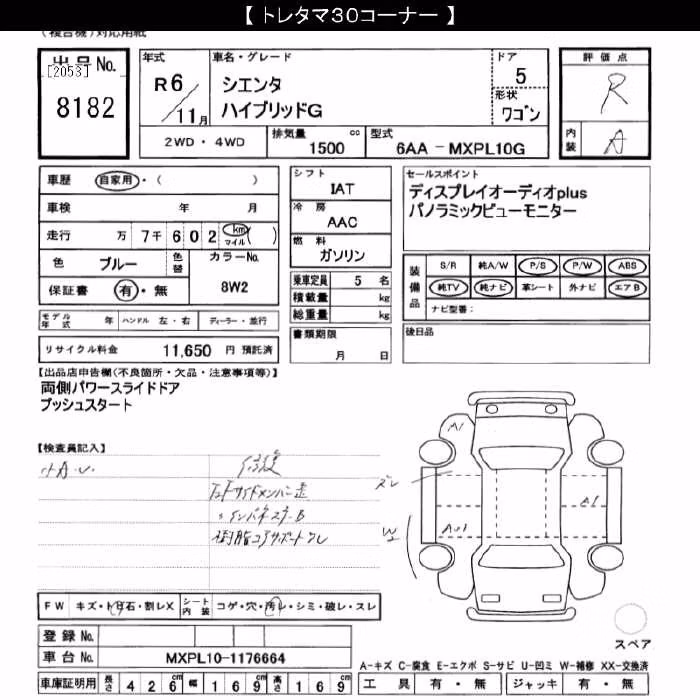 【 トレタマ30コーナー 】
(複合機)対応用紙
出品No.
[2053]
8182
年式
R6/11月
車名・グレード
シエンタ
ハイブリッドG
ドア
5
形状
ワゴン
2WD・4WD
排気量 1500 cc
型式 6AA - MXPL10G
評価点
R
内装
A
車歴 自家用・( )
車検 年 月
走行 万 7千602 km マイル ( )
色 ブルー 色替
カラーNo.
8W2
保証書 有・無
シフト
IAT
冷房
AAC
燃料
ガソリン
乗車定員 5 名
積載量 kg
総重量 kg
セールスポイント
ディスプレイオーディオplus
パノラミックビューモニター
装備品
S/R 純A/W P/S P/W ABS
純TV 純ナビ 革シート 外ナビ エアB
ナビ型番:
モデル年式 年 ハンドル 左・右 ディーラー・並行
リサイクル料金 11,650 円 預託済
書類期限
月 日
後日品
【出品店申告欄(不良箇所・欠品・注意事項等)】
両側パワースライドドア
プッシュスタート
【検査員記入】
小A.U.
修復
サイドメンバー
インパネスネB
樹脂コアサポートズレ
A1
ズレ
A1
W2
AU1
FW キズ・トビ石・割レX
シート内装 コゲ・穴・汚レ・シミ・破レ・スレ
登録No.
車台No. MXPL10-1176664
車庫証明用 長さ 426cm 幅 169cm 高さ 169cm
スペア
A-キズ C-腐食 E-エクボ S-サビ U-凹ミ W-補修 XX-交換済
工具 有・無 ジャッキ 有・無